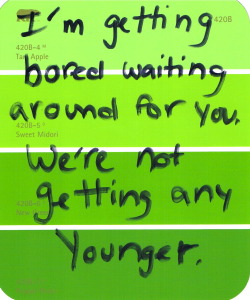 I'm getting
420B-4
420B
Tart Apple
bored waiting
around for you.
420B-5
Sweet Midori
We're not
getting any
420B-6
Younger.